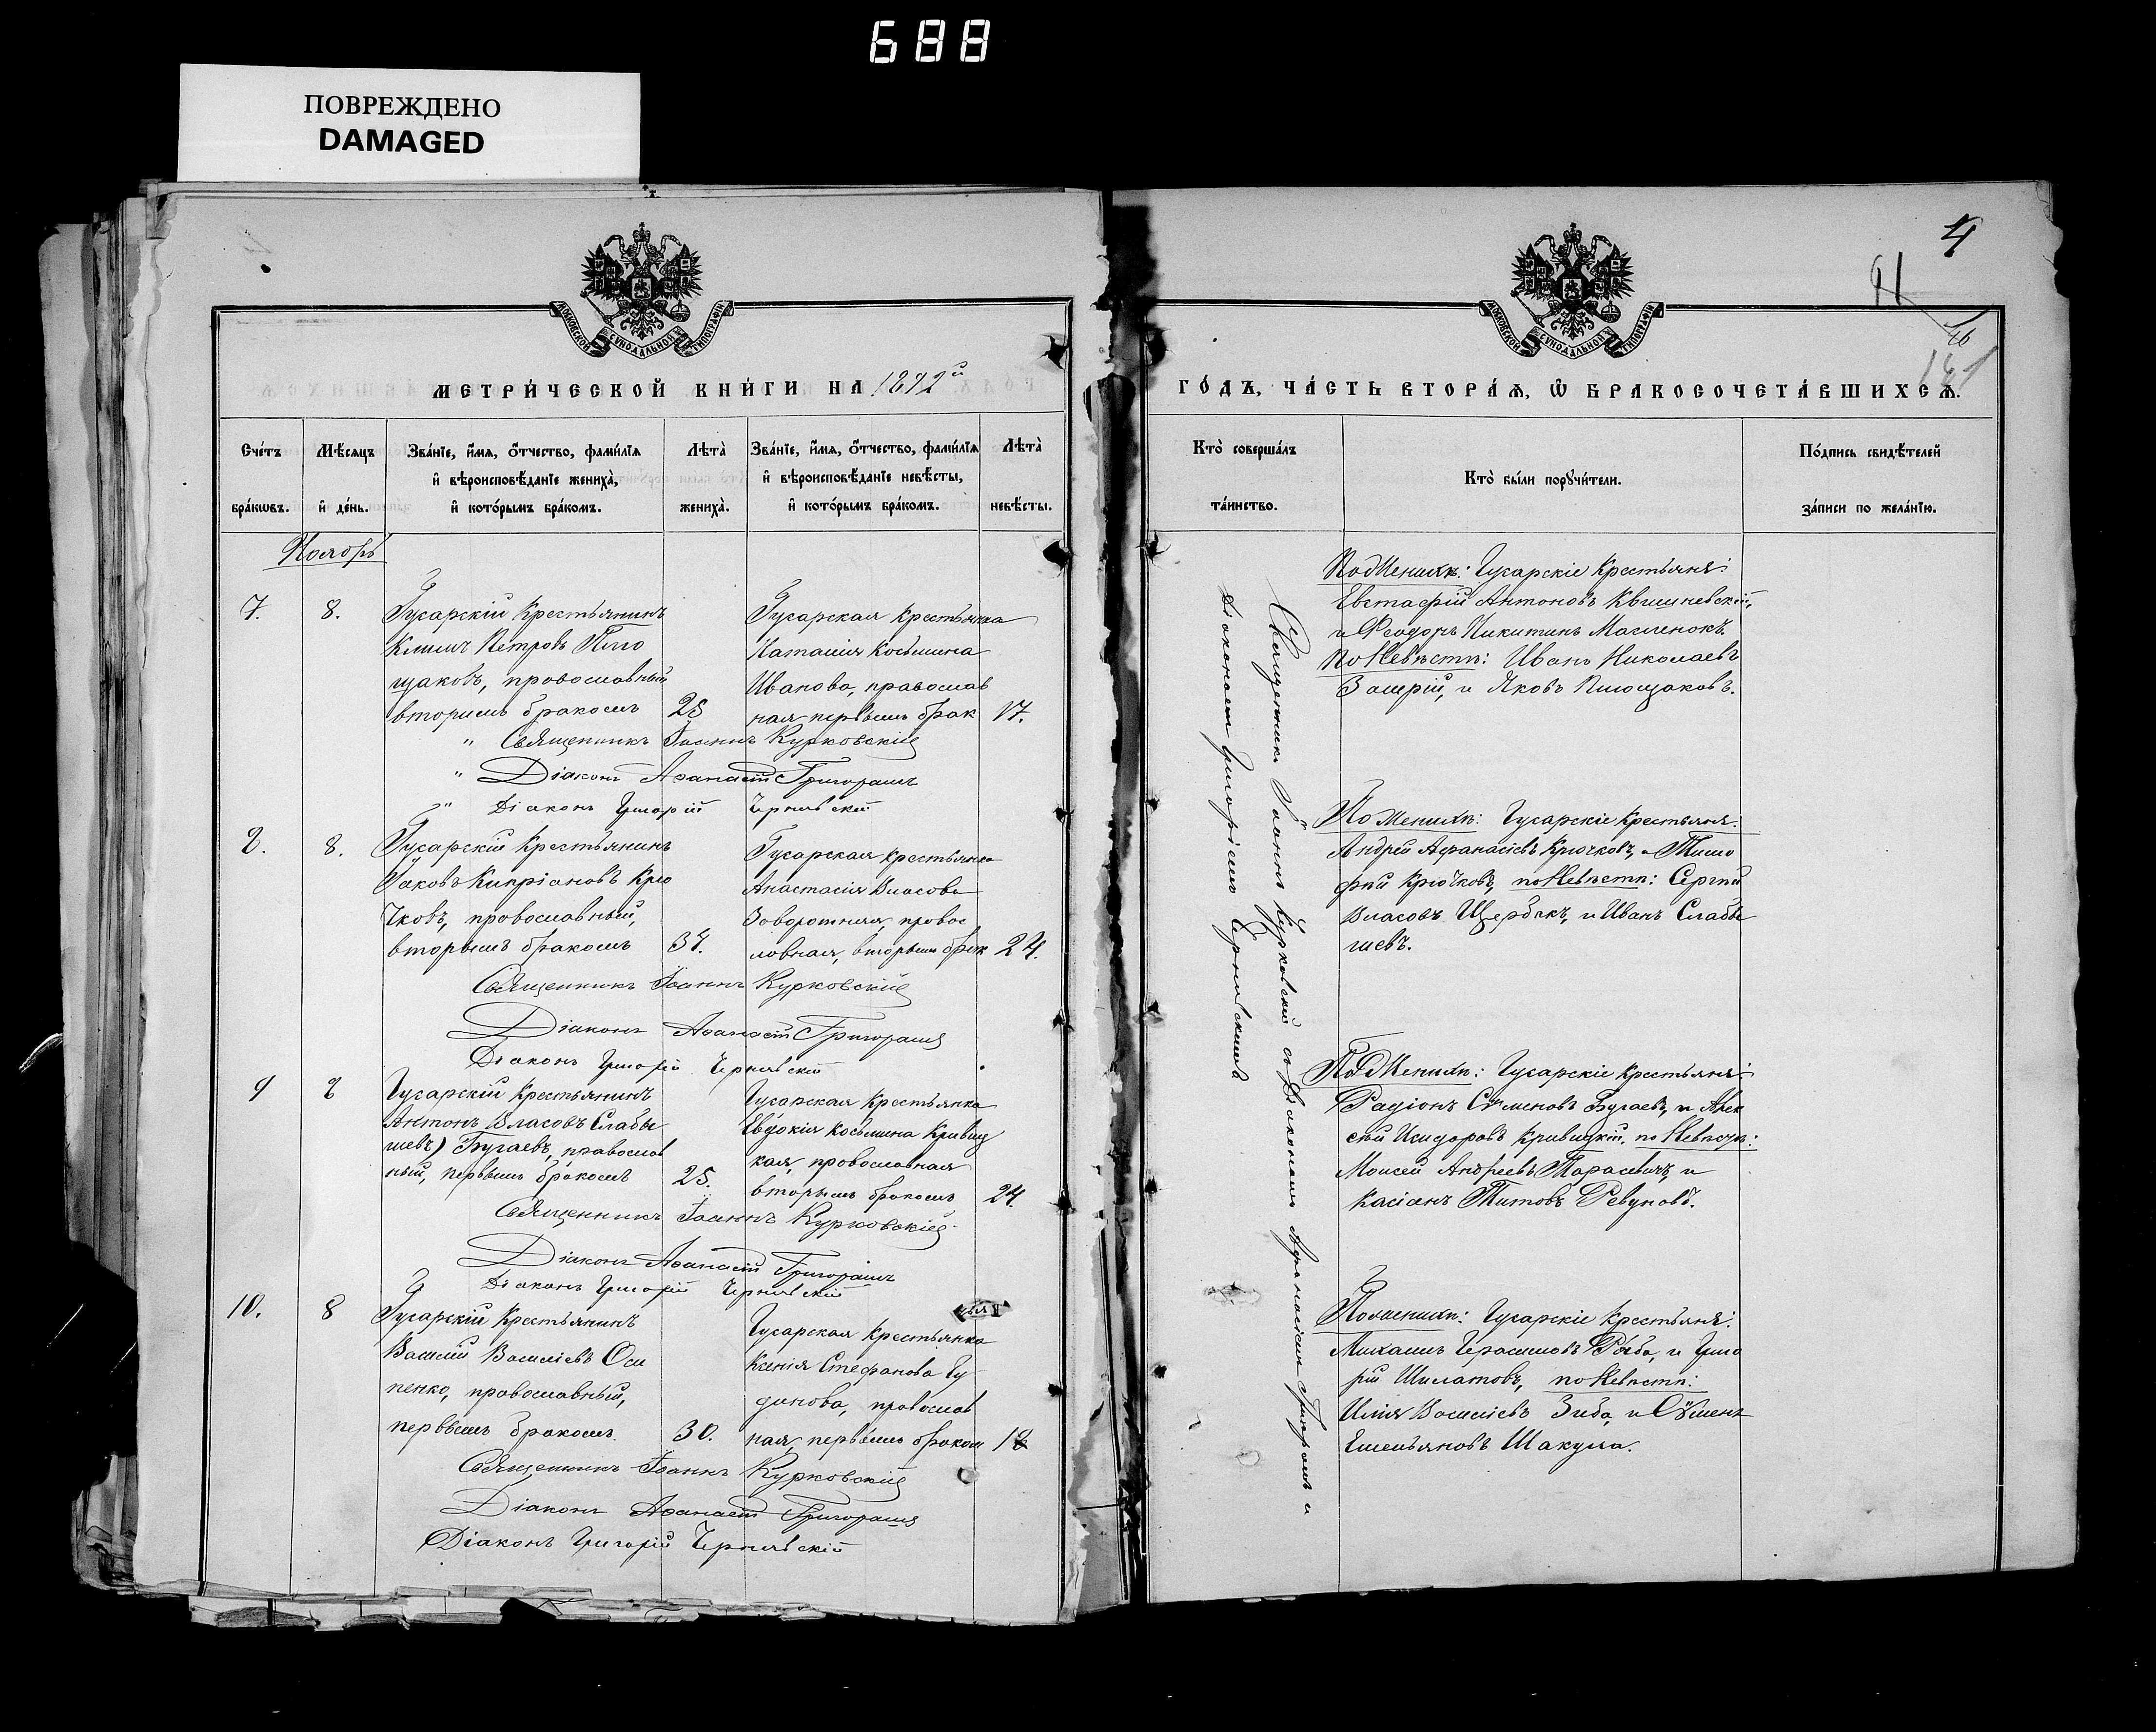 688
ПОВРЕЖДЕНО
DAMAGED
4
91
МОСКОВСКОЙ СѴНОДАЛЬНОЙ ТИПОГРАФІИ
МОСКОВСКОЙ СѴНОДАЛЬНОЙ ТИПОГРАФІИ
МЕТРИ́ЧЕСКОЙ КНИ́ГИ НА 1892й
ГО́ДЪ, ЧА́СТЬ ВТОРА́Я, Ѿ БРАКОСОЧЕТА́ВШИХСЯ.
Сче́тъ бра́кѡвъ.
Мѣ́сяцъ и҆ де́нь.
Зва́нїе, и҆́мя, ѻ҆́тчество, фами́лїя и҆ вѣроисповѣ́данїе жениха̀, и҆ кото́рымъ бра́комъ.
Лѣта̀ жениха̀.
Зва́нїе, и҆́мя, ѻ҆́тчество, фами́лїя и҆ вѣроисповѣ́данїе невѣ́сты, и҆ кото́рымъ бра́комъ.
Лѣта̀ невѣ́сты.
Кто̀ соверша́лъ та́инство.
Кто̀ бы́ли порꙋчи́тели.
По́дпись свидѣ́телей за́писи по жела́нїю.
Ноябрь
7.
8.
Гусарскій крестьянинъ
Климъ Петровъ Плю
щаковъ, православный
вторымъ бракомъ
25
Гусарская крестьянка
Наталія Косьмина
Иванова, православ
ная, первымъ брак
17.
" Священникъ Іоаннъ Курковскій
" Діаконъ Аѳанасій Григорашъ
" Діаконъ Григорій Чернявскій
8.
8.
Гусарскій крестьянинъ
Іаковъ Кипріановъ Крю
чковъ, православный,
вторымъ бракомъ
34.
Гусарская крестьянка
Анастасія Власова
Заворотняя, правос
лавная, вторымъ брак
24.
Священникъ Іоаннъ Курковскій
Діаконъ Аѳанасій Григорашъ
Діаконъ Григорій Чернявскій
9
8
Гусарскій крестьянинъ
Антонъ Власовъ Слабы
шевъ) Бугаевъ, православ
ный, первымъ бракомъ
25.
Гусарская крестьянка
Евдокія Косьмина Кривиц
кая, православная
вторымъ бракомъ
24.
Священникъ Іоаннъ Курковскій
Діаконъ Аѳанасій Григорашъ
Діаконъ Григорій Чернявскій
10.
8
Гусарскій крестьянинъ
Василій Василіевъ Оси
пенко, православный,
первымъ бракомъ
30.
Гусарская крестьянка
Ксенія Стефанова Гу-
динова, православ
ная, первымъ браком
18
Священникъ Іоаннъ Курковскій
Діаконъ Аѳанасій Григорашъ
Діаконъ Григорій Чернявскій
Священникъ Іоаннъ Курковскій съ Діакономъ Аѳанасіемъ Григорашъ и
Діакономъ Григоріемъ Чернявскимъ
По Женихѣ: Гусарскіе крестьяне:
Евстафій Антоновъ Квишневскій,
и Ѳеодоръ Никитинъ Масленокъ.
По Невѣстѣ: Иванъ Николаевъ
и Яковъ Плющаковъ.
По Женихѣ: Гусарскіе крестьяне:
Андрей Афанасіевъ Крючковъ, и Тимо
фей Крючковъ, по Невѣстѣ: Сергѣй
Власовъ Щербакъ, и Иванъ Слабы
шевъ.
По Женихѣ: Гусарскіе крестьяне:
Радіонъ Сѵменовъ Бугаевъ, и Алек
сѣй Исидоровъ Кривицкій, по Невѣстѣ:
Моисей Андреевъ Тарасевичъ, и
Касіанъ Титовъ Ревуновъ.
По женихѣ: Гусарскіе крестьяне:
Михаилъ Герасимовъ Рыба, и Григо
рій Шилатовъ, по Невѣстѣ:
Илія Василіевъ Зиба, и Сѵменъ
Емельяновъ Шакула.